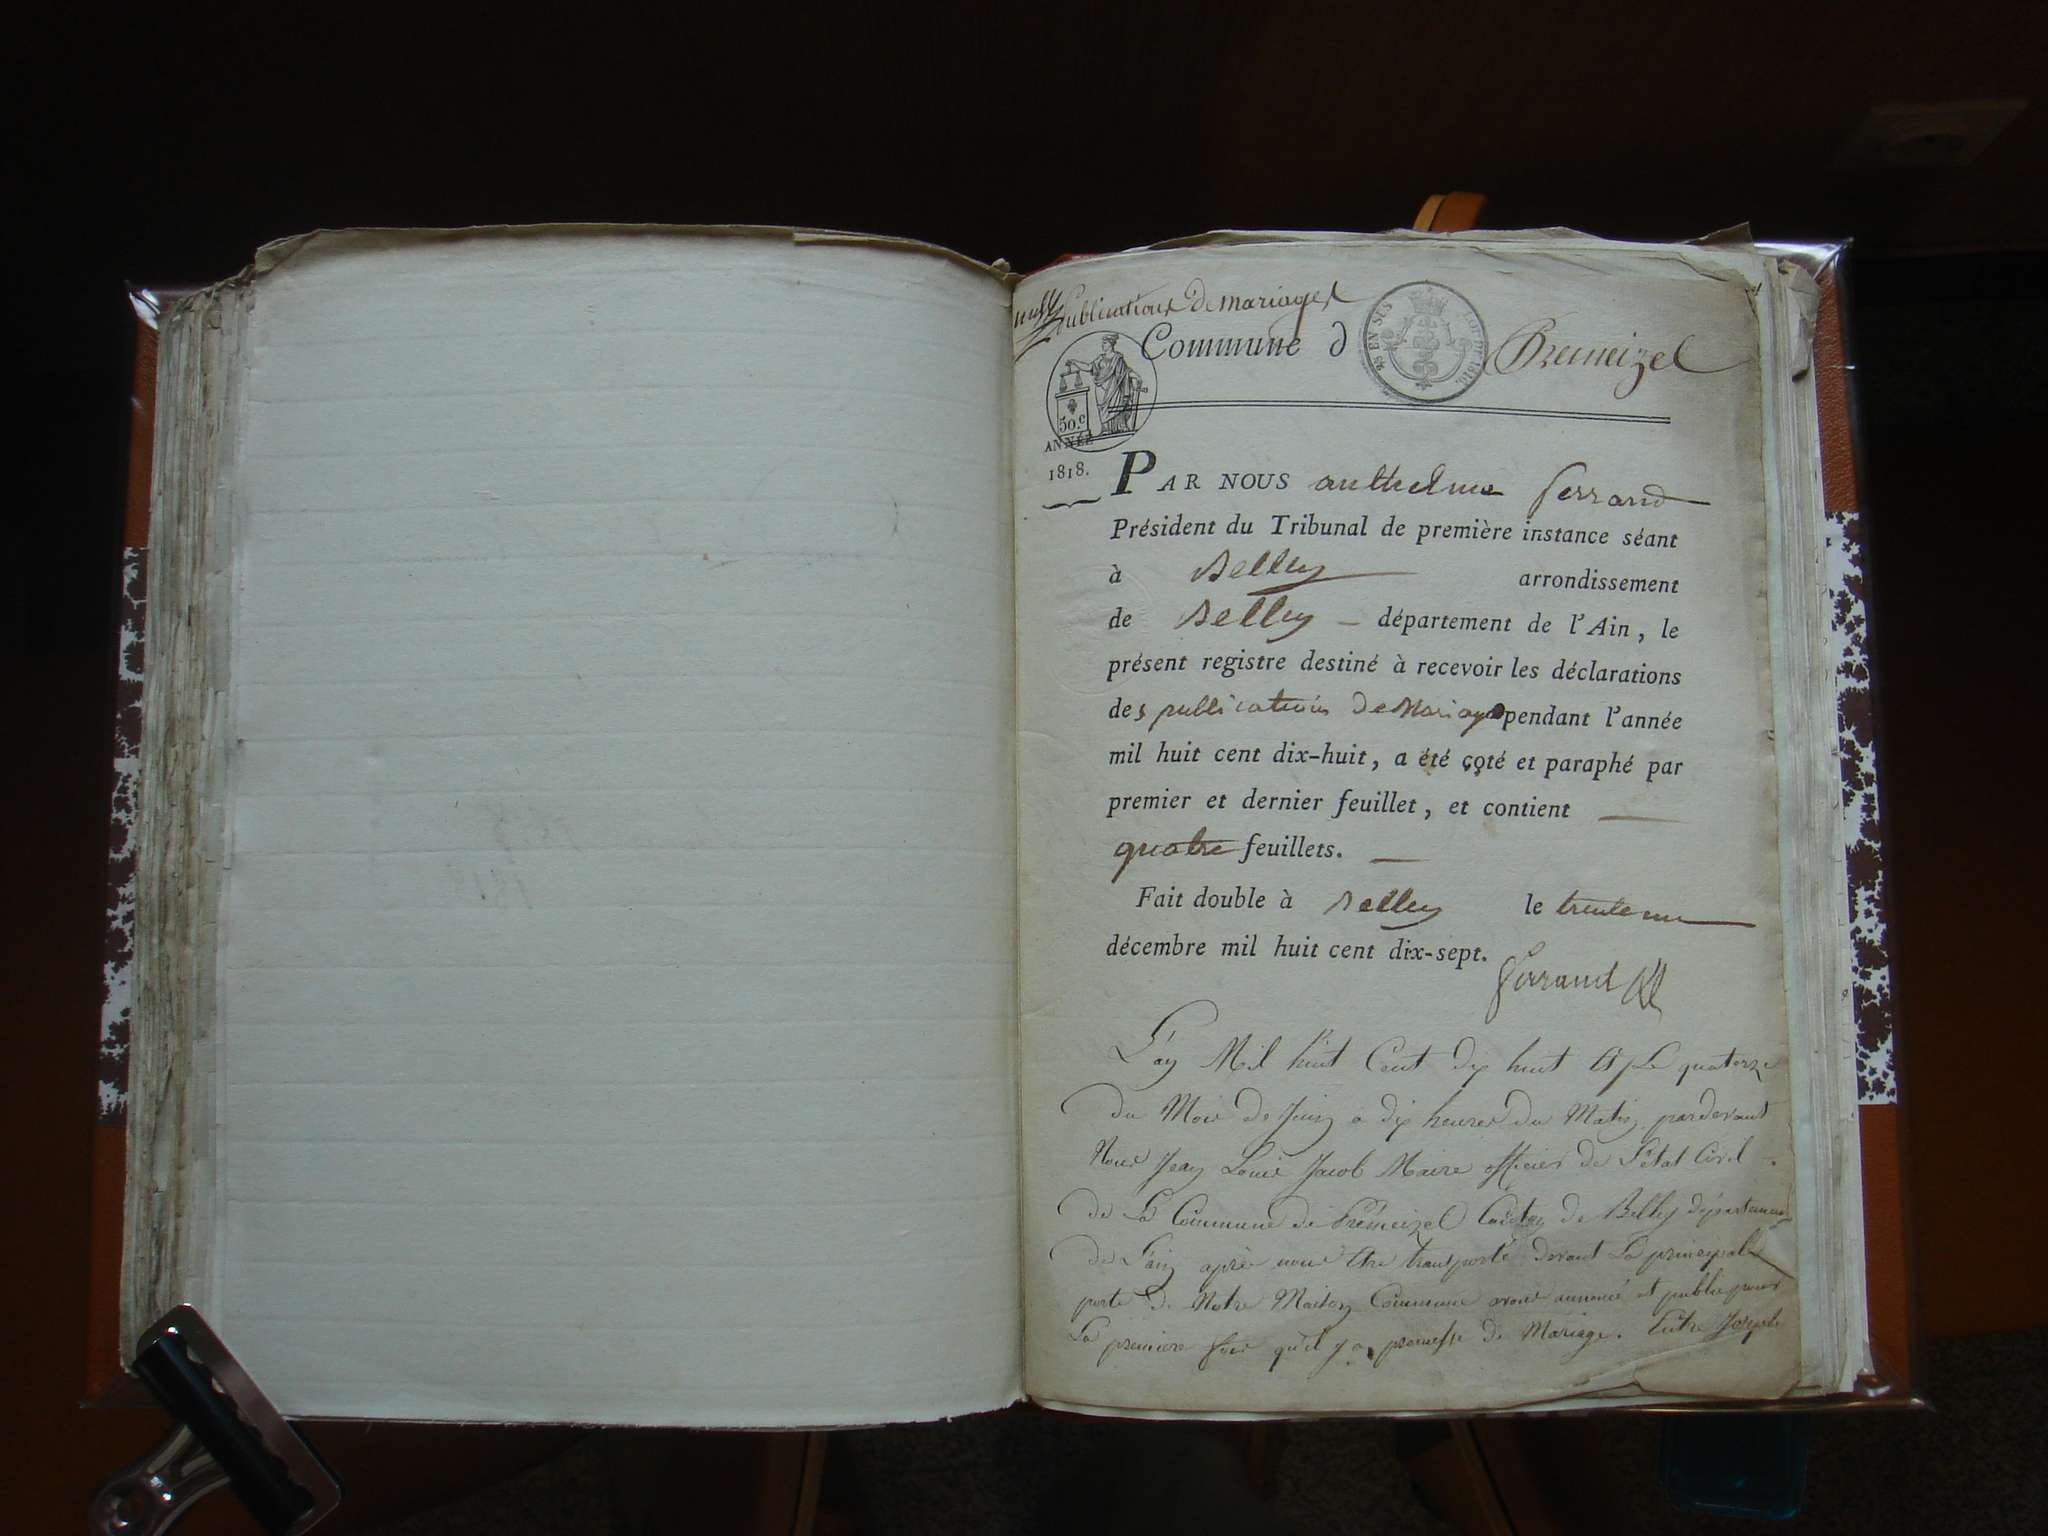 Publications de mariages
Commune d Premeizel
EN SUS LOI DE 1816.
50.c
ANNÉE
1818.
PAR NOUS anthelme ferrand
Président du Tribunal de première instance séant
à Belley arrondissement
de Belley — département de l'Ain, le
présent registre destiné à recevoir les déclarations
des publications de Mariage pendant l'année
mil huit cent dix-huit, a été çoté et paraphé par
premier et dernier feuillet, et contient —
quatre feuillets. —
Fait double à Belley le trente un
décembre mil huit cent dix-sept.
ferrand
L'an Mil huit Cent dix huit Et Le quatorze
du Mois de Juin a dix heures du Matin pardevant
Nous Jean Louis Jacob Maire officier de l'état Civil
de La Commune de Prémeizel Canton de Belley département
de L'ain après nous être transporté devant La principale
porte de Notre Maison Commune avons annoncé et publié pour
La premiere fois qu'il y a promesse de Mariage. Entre Joseph